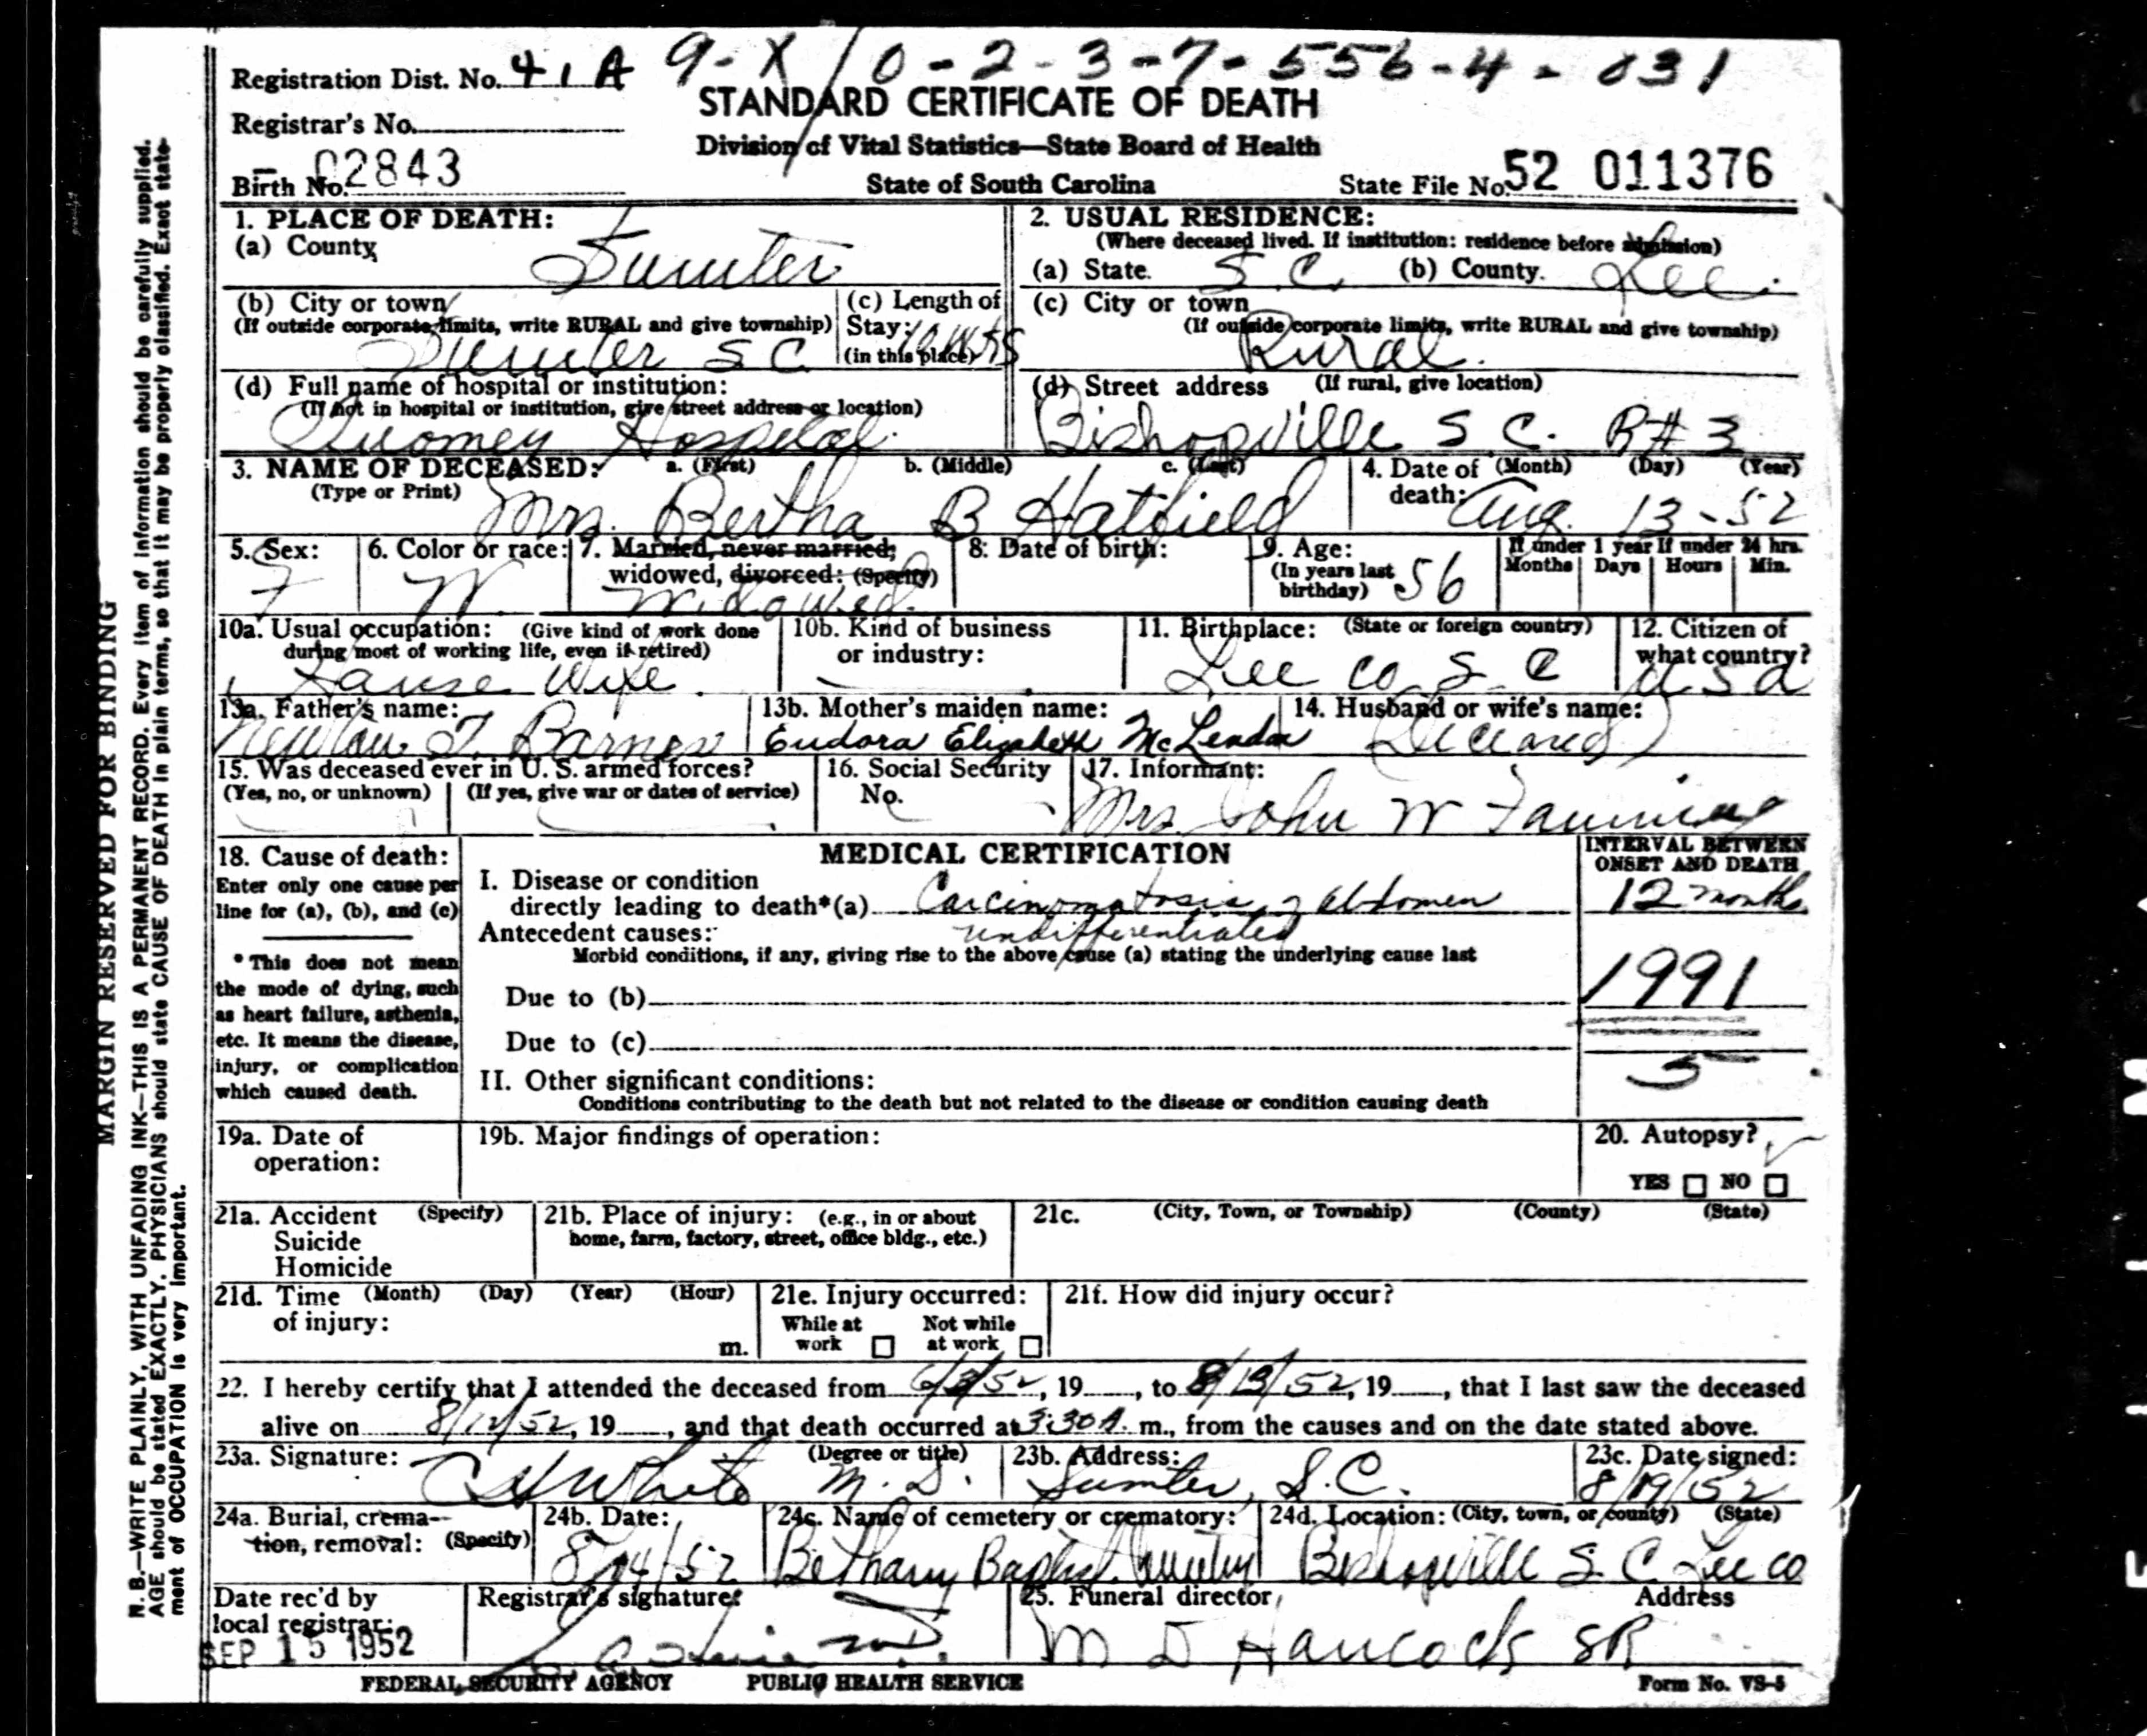 Registration Dist. No. 41A 9-X10-2-3-7-556-4-031
STANDARD CERTIFICATE OF DEATH
Registrar's No.
Division of Vital Statistics—State Board of Health
Birth No. 02843
State of South Carolina
State File No. 52 011376
1. PLACE OF DEATH:
(a) County Sumter
(b) City or town
(If outside corporate limits, write RURAL and give township)
Sumter S C
(c) Length of
Stay:
(in this place)
(d) Full name of hospital or institution:
(If not in hospital or institution, give street address or location)
Tuomey Hospital
2. USUAL RESIDENCE:
(Where deceased lived. If institution: residence before admission)
(a) State. S. C. (b) County. Lee.
(c) City or town
(If outside corporate limits, write RURAL and give township)
Rural.
(d) Street address (If rural, give location)
Bishopville S C. R# 3
3. NAME OF DECEASED: a. (First) b. (Middle) c. (Last)
(Type or Print)
Mrs. Bertha B Hatfield
4. Date of (Month) (Day) (Year)
death: Aug. 13 - 52
5. Sex:
F
6. Color or race:
W
7. Married, never married;
widowed, divorced: (Specify)
Widowed.
8. Date of birth:
9. Age:
(In years last
birthday) 56
If under 1 year If under 24 hrs.
Months Days Hours Min.
10a. Usual occupation: (Give kind of work done
during most of working life, even if retired)
House Wife
10b. Kind of business
or industry:
11. Birthplace: (State or foreign country)
Lee Co S. C
12. Citizen of
what country?
USA
13a. Father's name:
Newton T. Barnes
13b. Mother's maiden name:
Eudora Elizabeth McLendon
14. Husband or wife's name:
(Deceased)
15. Was deceased ever in U. S. armed forces?
(Yes, no, or unknown) (If yes, give war or dates of service)
16. Social Security
No.
17. Informant:
Mrs John W Fanning
MEDICAL CERTIFICATION
18. Cause of death:
Enter only one cause per
line for (a), (b), and (c)
* This does not mean
the mode of dying, such
as heart failure, asthenia,
etc. It means the disease,
injury, or complication
which caused death.
I. Disease or condition
directly leading to death*(a) Carcinomatosis of abdomen
Antecedent causes: undifferentiated
Morbid conditions, if any, giving rise to the above cause (a) stating the underlying cause last
Due to (b)
Due to (c)
II. Other significant conditions:
Conditions contributing to the death but not related to the disease or condition causing death
INTERVAL BETWEEN
ONSET AND DEATH
12 months
1991
5
19a. Date of
operation:
19b. Major findings of operation:
20. Autopsy?
YES NO
21a. Accident (Specify)
Suicide
Homicide
21b. Place of injury: (e.g., in or about
home, farm, factory, street, office bldg., etc.)
21c. (City, Town, or Township) (County) (State)
21d. Time (Month) (Day) (Year) (Hour)
of injury:
m.
21e. Injury occurred:
While at Not while
work at work
21f. How did injury occur?
22. I hereby certify that I attended the deceased from 6/3/52, 19, to 8/13/52, 19, that I last saw the deceased
alive on 8/12/52, 19, and that death occurred at 3:30 A. m., from the causes and on the date stated above.
23a. Signature: (Degree or title)
White M. D.
23b. Address:
Sumter, S.C.
23c. Date signed:
8/19/52
24a. Burial, crema-
tion, removal: (Specify)
24b. Date:
8/14/52
24c. Name of cemetery or crematory:
Bethany Baptist Cemetery
24d. Location: (City, town, or county) (State)
Bishopville S. C. Lee Co
Date rec'd by
local registrar:
SEP 15 1952
Registrar's signature:
25. Funeral director, Address
M D Hancock SR
FEDERAL SECURITY AGENCY PUBLIC HEALTH SERVICE
Form No. VS-5
MARGIN RESERVED FOR BINDING
N.B.—WRITE PLAINLY, WITH UNFADING INK—THIS IS A PERMANENT RECORD. Every item of information should be carefully supplied.
AGE should be stated EXACTLY. PHYSICIANS should state CAUSE OF DEATH in plain terms, so that it may be properly classified. Exact state-
ment of OCCUPATION is very important.